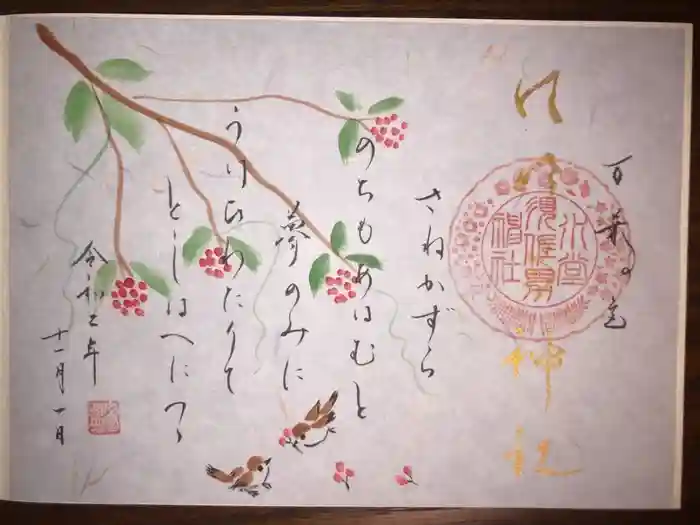 万葉の
水堂須佐男神社
さねかずら
のちもあはむと
夢のみに
うけひわたりて
としはへにつゝ
令和二年
十一月一日